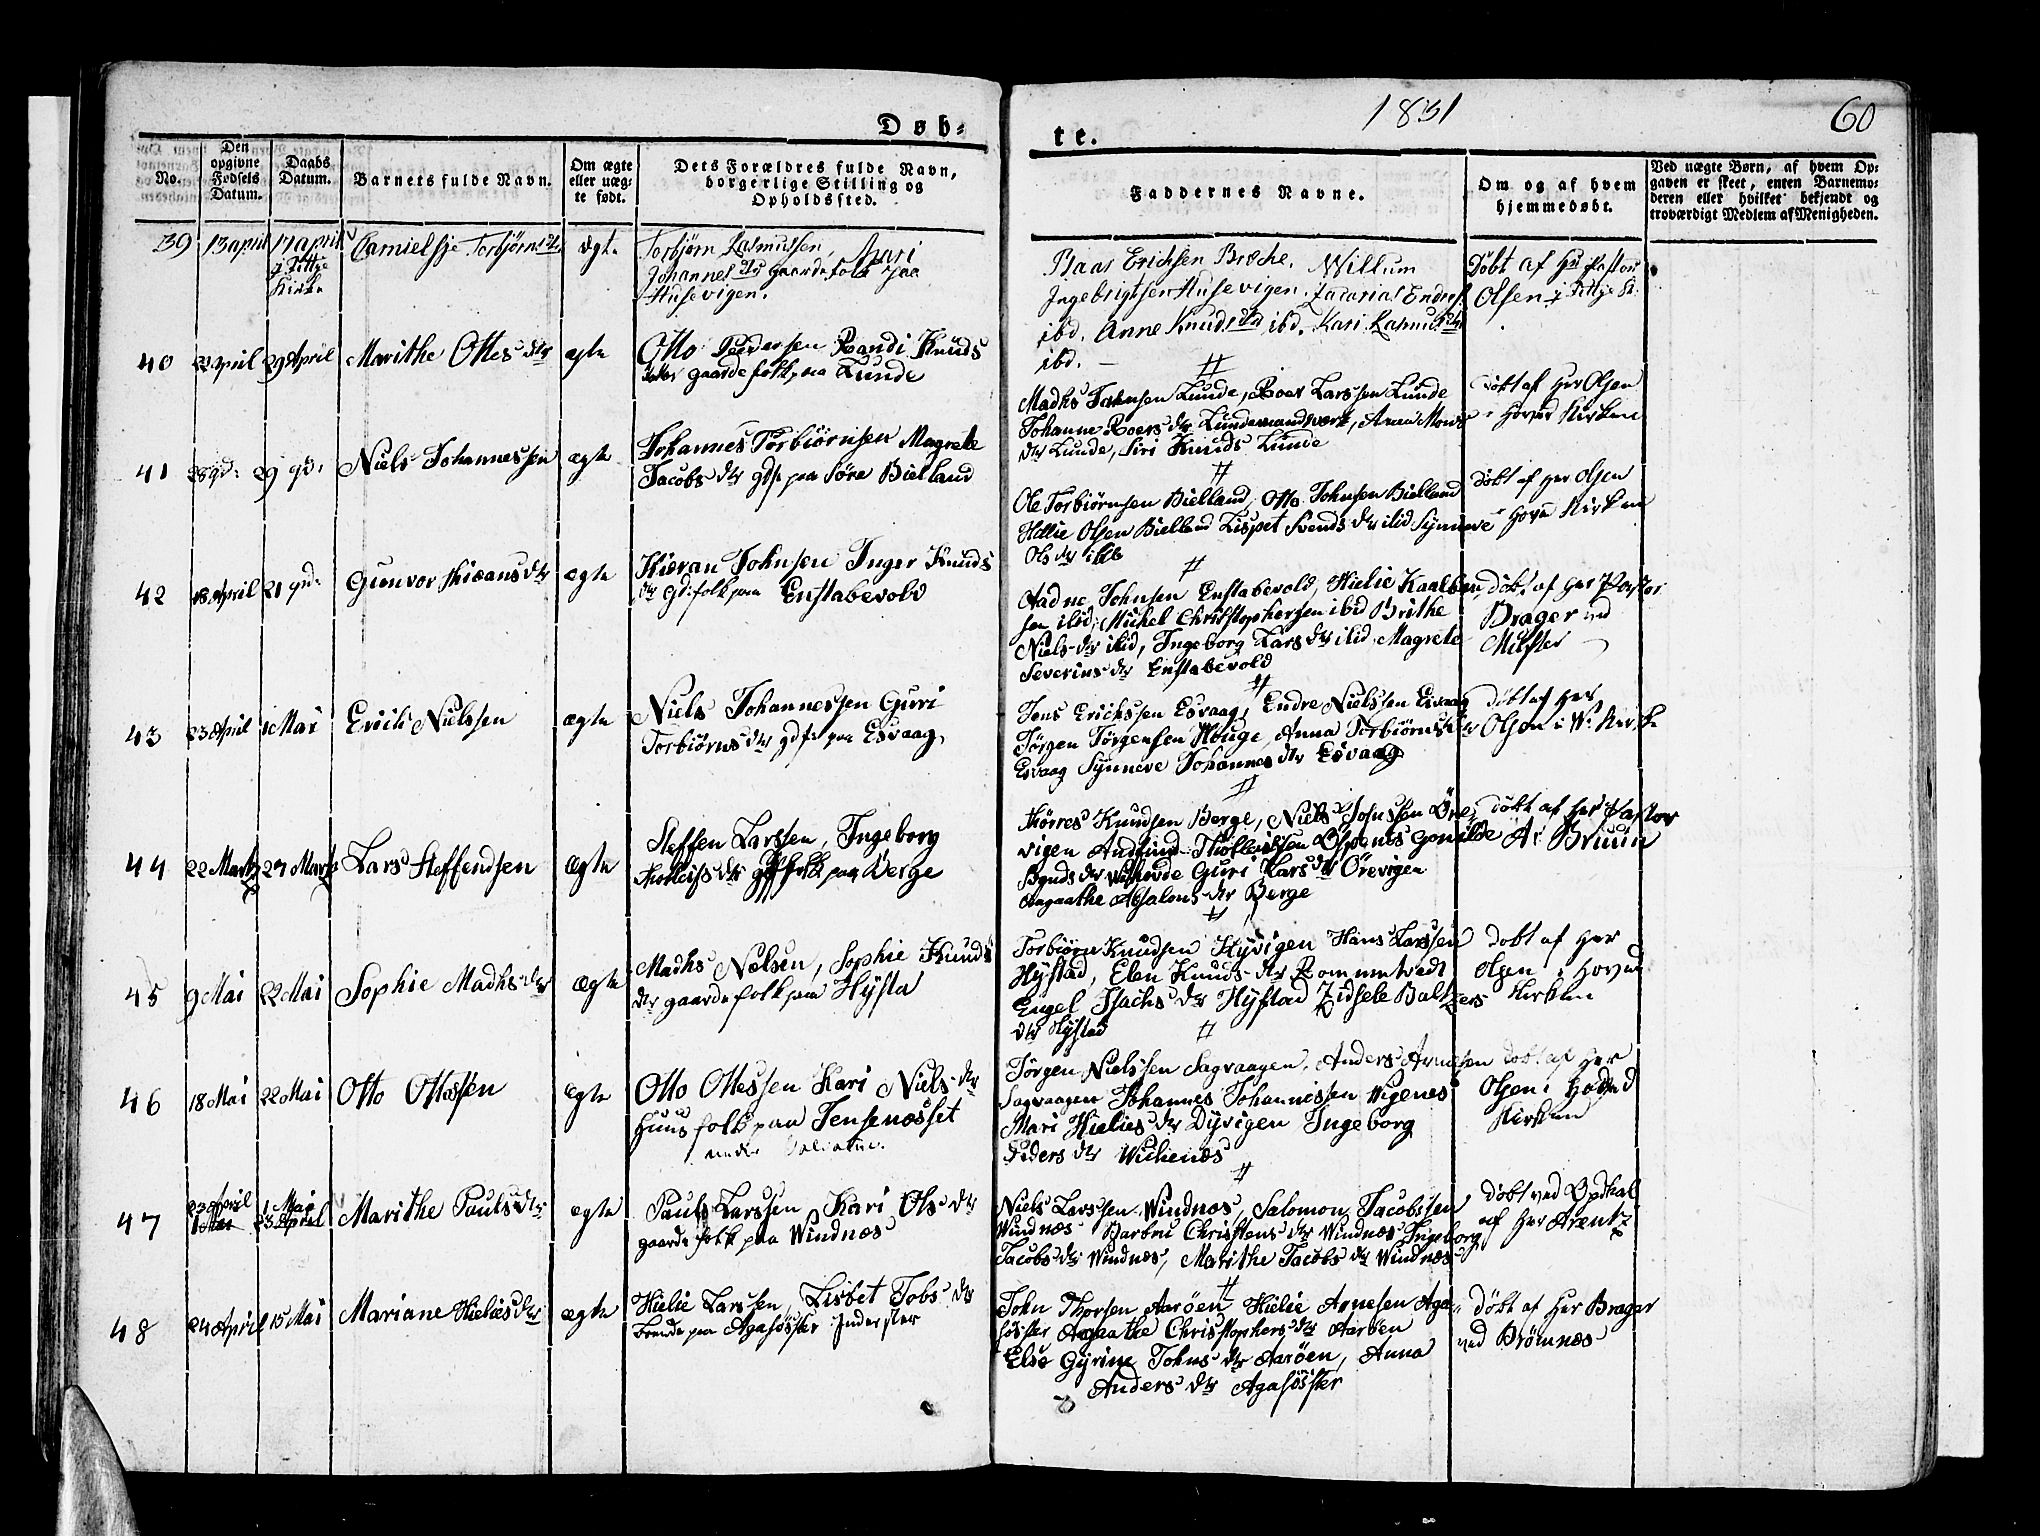 Døb-
te.
1831
60
No.
Den
opgivne
Fødsels
Datum.
Daabs
Datum.
Barnets fulde Navn.
Om ægte
eller uæg-
te født.
Dets Forældres fulde Navn,
borgerlige Stilling og
Opholdssted.
Faddernes Navne.
Om og af hvem
hjemmedøbt.
Ved uægte Børn, af hvem Op-
gaven er skeet, enten Barnemo-
deren eller hvilket bekjendt og
troværdigt Medlem af Menigheden.
39 13 april 17 april
i Fittje
Kirke
Torbjørn Rasmussen,
Johannes dtr gaardefolk paa
Husevigen.
Baar Erichsen Willum
Ingebrigtsen Husevigen.
ibd. Anne Knuds dtr ibd. Kari Rasmus dtr
ibd.
Døbt af Hr Pastor
Olsen i Fittje K.
40 29 April Marithe Ottes dtr ægte
Otto Pedersen Randi Knuds
dtter gaardefolk paa Lunde
Madhs Johnsen Lunde, Roer Larssen Lunde
Johanne Roers dtr
dtr Lunde, Siri Knuds Lunde
døbt af Her Olsen
i Hoved Kirken
41 28 gd: 29 gd: Niels Johannessen ægte
Johannes Torbiörnsen Magrete
Jacobs dtr gdf: paa Søre Bielland
Ole Torbiörnsen Bielland, Otto Johnsen Bielland
Hellie Olsen Bielland Lispet Svends dtr ibid Synneve
Ols dtr ibb
døbt af Her Olsen
i Hoved Kirken
42 April 21 gd: Gunvor ægte
Johnsen Inger Knuds
dtr gd:folk paa Enstabevold
Aadne Johnsen Enstabevold, Hielie
sen ibid, Michel Christophersen ibid Brithe
Niels dtr ibid, Ingeborg Lars dtr ibid Magrete
Severins dtr Enstabevold
døbt af Her Pastor
Brager ved
43 23 April 1 Mai Erich Nielssen ægte
Niels Johannessen Guri
Torbiörns dtr gdf: paa Esvaag
Jens Erichssen Esvaag, Endre Nielssen Esvaag
Jörgen Jörgensen Houge, Anna Torbiörns dtr
Esvaag Synneve Johannes dtr Esvaag
döbt af Her
Olsen i
44 22 Martz 27 Martz Lars Steffendsen ægte
Steffen Larssen, Ingeborg
Thorleifs dtr paa Berge
Thörres Knudsen Berge, Niels Johnsson Öre-
vigen
Guri Lars dtr Örevigen
Aagaathe Absalons dtr Berge
döbt af her Pastor
Ar Bruun
45 9 Mai 22 Mai Sophie Madhs dtr ægte
Madhs Nelsen, Sophie Knuds
dtr gaardefolk paa Hÿsta
Torbiörn Knudsen Hans Larssen
Hÿstad, Elen Knuds dtr Rommetvedt
Engel Isachs dtr Hÿstad Zidsele Baltzers
dtr Hÿstad
dobt af Her
Olsen i Hoved
Kirken
46 18 Mai 22 Mai Otto Ottessen ægte
Otto Ottessen Kari Niels dtr
Huusfolk paa Jensenæsset
under
Jörgen Nielssen Sagvaagen, Anders Arnesen
Sagvaagen Johannes Johannessen
Mari Hielies dtr Dÿvigen Ingeborg
Peders dtr
dobt af Her
Olsen i Hoved
Kirken
47 23 April 1 Mai Marithe Pauls dtr ægte
Pauls Larssen Kari Ols dtr
gaardefolk paa Windnæs
Niels Larssen Windnæs, Salomon Jacobssen
Windnæs Barbru Christens dtr Windnæs Ingeborg
Jacobs dtr Windnæs, Marithe Jacobs dtr Windnæs
döbt ved Opdhal
af Her Arentz
48 24 April 15 Mai Mariane Hielies dtr ægte
Hielie Larssen, Lisbet Jobs dtr
brude paa Agasöster Inderster
John Thorsen Aaröen Hielie Arnesen Aga-
söster Agaathe Christophers dtr Aaröen
Else Gÿrine Johns dtr Aaröen, Anna
Anders dtr Agasöster
döbt af Her Brager
ved Brömnæs